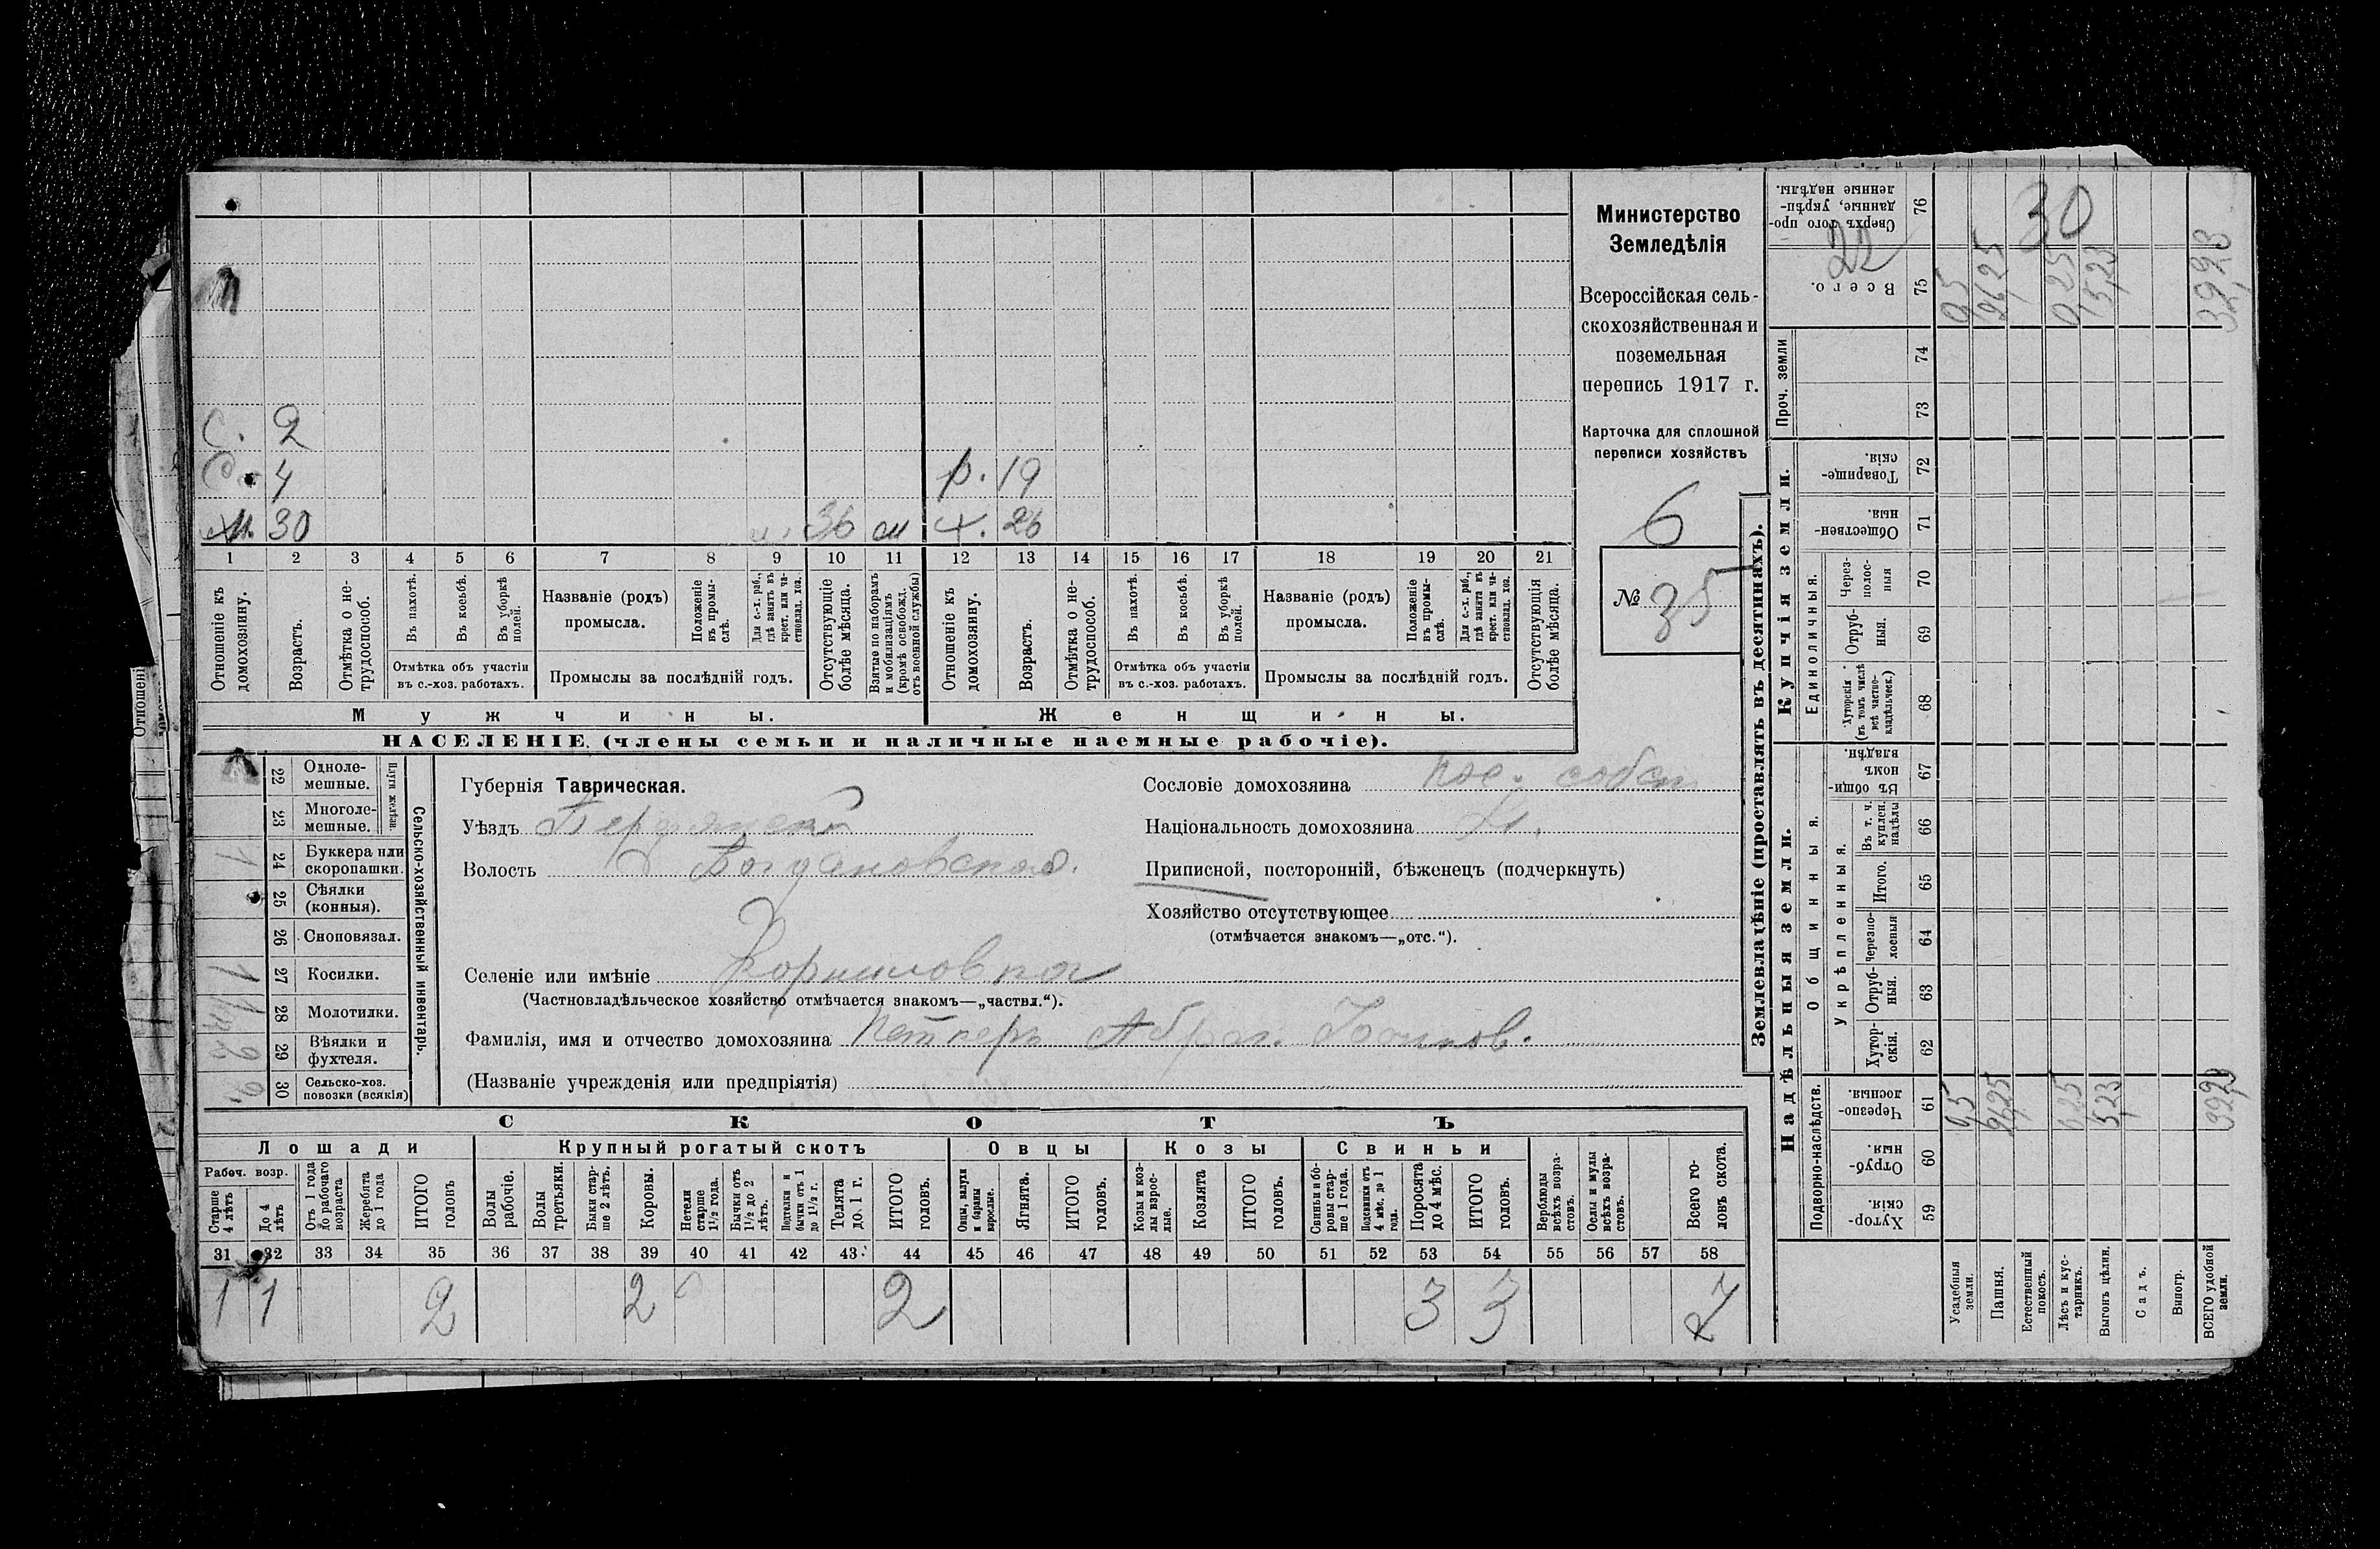 Министерство
Земледѣлія
Всероссійская сель-
скохозяйственная и
поземельная
перепись 1917 г.
Карточка для сплошной
переписи хозяйствъ
6
№ 35
С. 2
С. 4
30
36 м
р. 19
ж. 26
1 2 3 4 5 6 7 8 9 10 11 12 13 14 15 16 17 18 19 20 21
Отношеніе къ домохозяину.
Возрастъ.
Отмѣтка о не-трудоспособ.
Въ пахотѣ.
Въ косьбѣ.
Въ уборкѣ полей.
Отмѣтка объ участіи
въ с.-хоз. работахъ.
Названіе (родъ)
промысла.
Положеніе въ промы-слѣ.
Для с.-х. раб., гдѣ занять въ крест. или ча-стновлад. хоз.
Промыслы за послѣдній годъ.
Отсутствующіе болѣе мѣсяца.
Взятые по наборамъ и мобилизаціямъ (кромѣ освобожд. отъ военной службы)
Отношеніе къ домохозяину.
Возрастъ.
Отмѣтка о не-трудоспособ.
Въ пахотѣ.
Въ косьбѣ.
Въ уборкѣ полей.
Отмѣтка объ участіи
въ с.-хоз. работахъ.
Названіе (родъ)
промысла.
Положеніе въ промы-слѣ.
Для с.-х. раб., гдѣ занята въ крест. или ча-стновлад. хоз.
Промыслы за послѣдній годъ.
Отсутствующія болѣе мѣсяца.
Мужчины.
Женщины.
НАСЕЛЕНІЕ (члены семьи и наличные наемные рабочіе).
Сельско-хозяйственный инвентарь.
Плуги желѣзн.
22 Одноле-мешные.
23 Многоле-мешные.
24 Буккера или скоропашки. 1
25 Сѣялки (конныя).
26 Сноповязал.
27 Косилки. 1
28 Молотилки.
29 Вѣялки и фухтеля.
30 Сельско-хоз. повозки (всякія)
Губернія Таврическая.
Уѣздъ Бердянскій
Волость Богдановская.
Селеніе или имѣніе
(Частновладѣльческое хозяйство отмѣчается знакомъ—„частвл.“).
Фамилія, имя и отчество домохозяина Петкеръ Абрам.
(Названіе учрежденія или предпріятія)
Сословіе домохозяина пос. собст
Національность домохозяина
Приписной, посторонній, бѣженецъ (подчеркнуть)
Хозяйство отсутствующее
(отмѣчается знакомъ—„отс.“).
СКОТЪ
Лошади
Крупный рогатый скотъ
Овцы
Козы
Свиньи
Рабоч. возр.
Старше 4 лѣтъ
До 4 лѣтъ
Отъ 1 года до рабочаго возраста
Жеребята до 1 года
ИТОГО головъ
Волы рабочіе.
Волы третьяки.
Быки стар-ше 2 лѣтъ.
Коровы.
Нетели старше 1½ года.
Бычки отъ 1½ до 2 лѣтъ.
Подтелки и бычки отъ 1 до 1½ г.
Телята до 1 г.
ИТОГО головъ.
Овцы, валухи и бараны взрослые.
Ягнята.
ИТОГО головъ.
Козы и коз-лы взрос-лые.
Козлята
ИТОГО головъ.
Свиньи и бо-ровы стар-ше 1 года.
Подсвинки отъ 4 мѣс. до 1 года.
Поросята до 4 мѣс.
ИТОГО головъ.
Верблюды всѣхъ возра-стовъ.
Ослы и мулы всѣхъ возра-стовъ.
Всего го-ловъ скота.
31 32 33 34 35 36 37 38 39 40 41 42 43 44 45 46 47 48 49 50 51 52 53 54 55 56 57 58
1 1 2 2 2 3 3 7
Землевладѣніе (проставлять въ десятинахъ).
Надѣльныя земли.
Купчія земли.
Проч. земли
Подворно-наслѣдств.
Общинныя.
Укрѣпленныя.
Единоличныя.
59 Хутор-скія.
60 Отруб-ныя.
61 Черезпо-лосныя.
62 Хутор-скія.
63 Отруб-ныя.
64 Черезпо-лосныя
65 Итого.
66 Въ т. ч. куплен. надѣлы
67 Въ общи-номъ владѣн.
68 Хуторскія (въ томъ числѣ всѣ частно-владѣльческ.)
69 Отруб-ныя.
70 Через-полос-ныя
71 Обществен-ныя.
72 Товарище-скія.
73
74
75 Всего.
76 Сверхъ того про-данные, укрѣп-ленные надѣлы.
22
30
Усадебныя земли.
Пашня.
Естественный покосъ.
Лѣсъ и кус-тарникъ.
Выгонъ цѣлин.
Садъ.
Виногр.
ВСЕГО удобной земли.